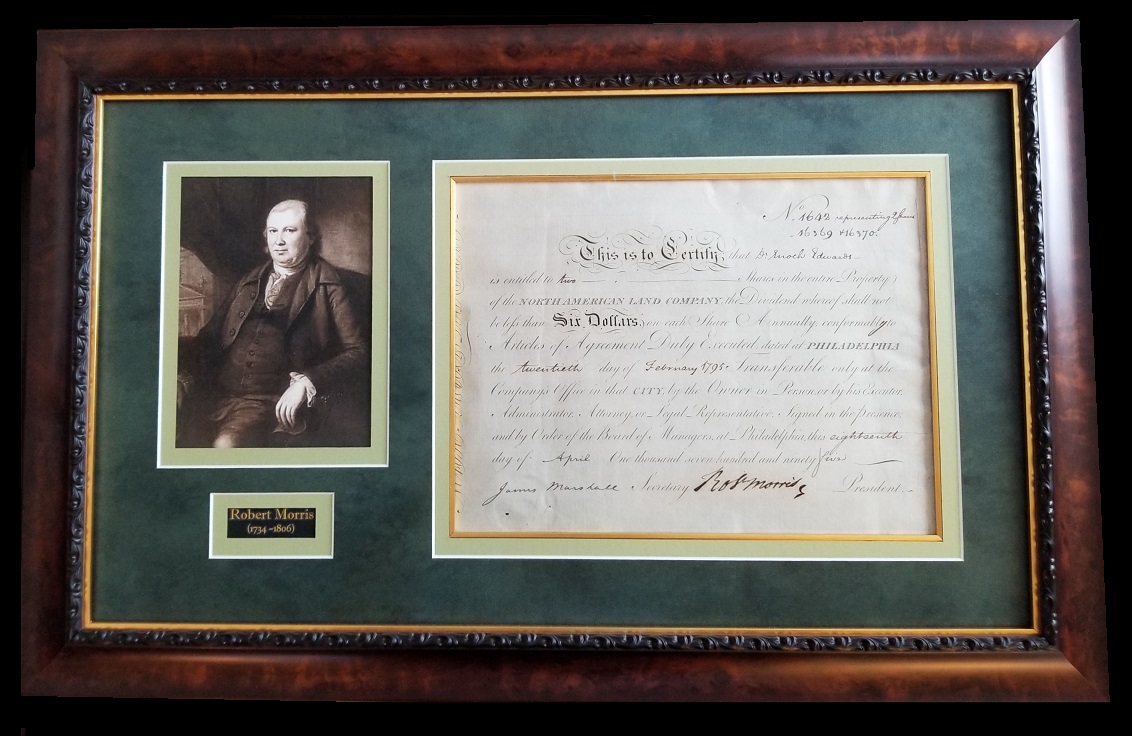 Robert Morris
(1734 –1806)
No. 1642 representing 2 shares
16369 & 16370.
This is to Certify that Dr Enoch Edwards
is entitled to two Shares in the entire Property
of the NORTH AMERICAN LAND COMPANY, the Dividend whereof shall not
be less than Six Dollars on each Share Annually, conformably to
Articles of Agreement Duly Executed, dated at PHILADELPHIA
the twentieth day of February 1795. Transferable only at the
Company's Office in that CITY, by the Owner in Person, or by his Executor,
Administrator, Attorney, or Legal Representative. Signed in the presence,
and by Order of the Board of Managers, at Philadelphia, this eighteenth
day of April One thousand seven hundred and ninety five
James Marshall Secretary Robt Morris President.